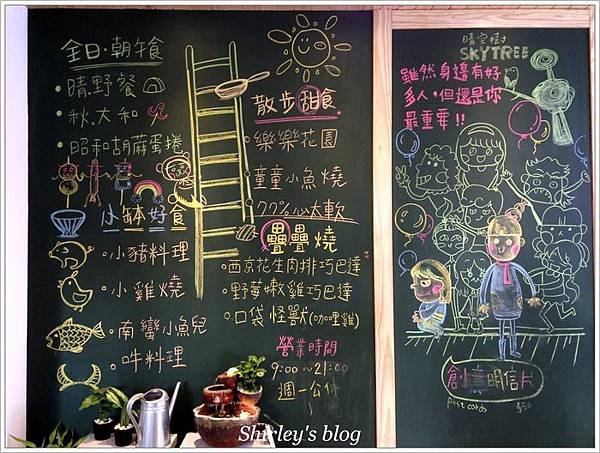 全日・朝午食
・晴野餐
・秋.大和
・昭和胡蔴蛋捲
小缽好食
・小豬料理
・小雞燒
・南蠻小魚兒
・吽料理
散步甜食
・樂樂花園
・童童小魚燒
・77%心太軟
疊疊燒
・西京花生肉排巧巴達
・野莓嫩雞巧巴達
・口袋怪獸(咖哩雞)
營業時間
9:00~21:00
週一公休
晴空樹
SKYTREE
雖然身邊有好
多人,但還是你
最重要!!
創意明信片
post cards $50
Shirley's blog